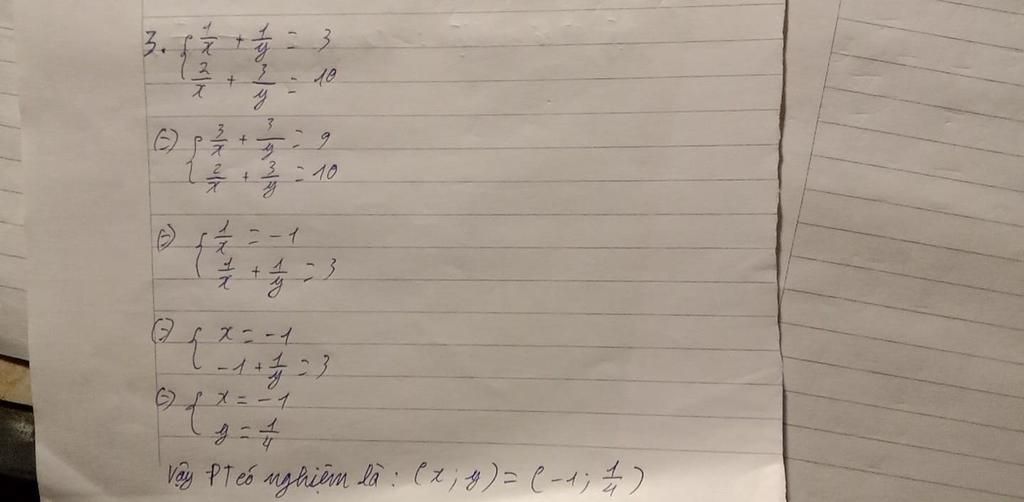 3. { 1/x + 1/y = 3
2/x + 3/y = 10
(=) { 3/x + 3/y = 9
2/x + 3/y = 10
(=) { 1/x = -1
1/x + 1/y = 3
(=) { x = -1
-1 + 1/y = 3
(=) { x = -1
y = 1/4
Vậy PT có nghiệm là : (x ; y) = (-1 ; 1/4)